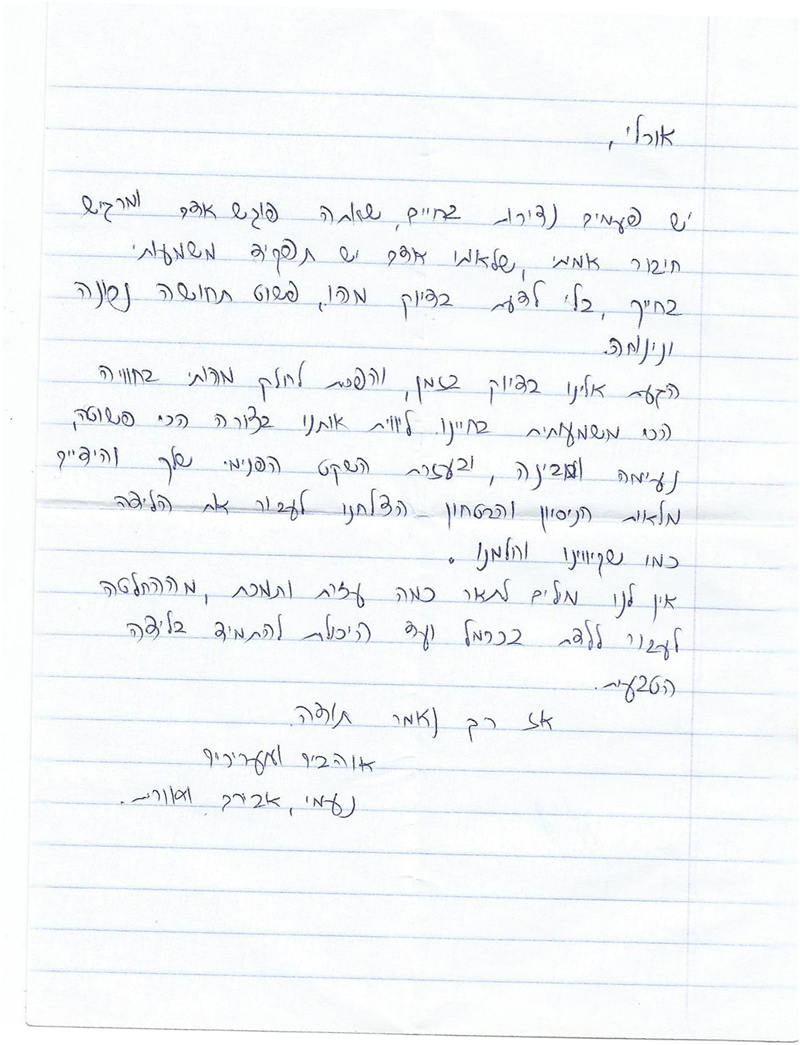 אורלי,
יש פעמים נדירות בחיים, שאתה פוגש אדם ומרגיש
חיבור אמיתי, שלאותו אדם יש תפקיד משמעותי
בחייך, בלי לדעת בדיוק מהו, פשוט תחושה נכונה
ונינוחה.
הגעת אלינו בדיוק בזמן, והפכת לחלק מהותי בחוויה
הכי משמעותית בחיינו. ליווית אותנו בצורה הכי פשוטה,
נעימה ומבינה, ובעזרת השקט הפנימי שלך והידיים
מלאות הניסיון והבטחון - הצלחנו לעבור את הלידה
כמו שקיווינו וחלמנו.
אין לנו מילים לתאר כמה עזרת ותמכת, מההחלטה
לעבור ללדת בכרמל ועד היכולת להתמיד בלידה
הטבעית.
אז רק נאמר תודה.
אוהבים ומעריכים
נעמי, אבירם